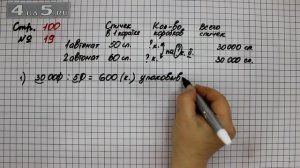 4 A 5 .RU
Стр. 100
№ 19
Спичек в 1 коробке
Кол-во коробков
Всего спичек
1 автомат 50 сп. ? к. 30 000 сп.
на ? к. б.
2 автомат 60 сп. ? к. 30 000 сп.
1) 30 000 : 50 = 600 (к.) упаковыв